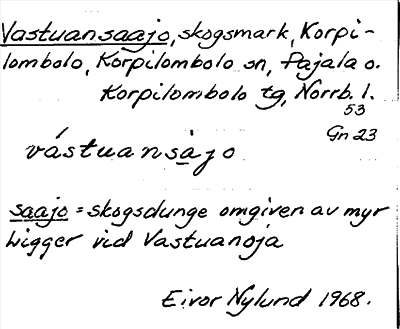 Vastuansaajo, skogsmark, Korpi-
lombolo, Korpilombolo sn, Pajala o.
Korpilombolo tg, Norrb. l.
53
Gn 23
vástuansàjo
saajo = skogsdunge omgiven av myr
Ligger vid Vastuanoja
Eivor Nylund 1968.